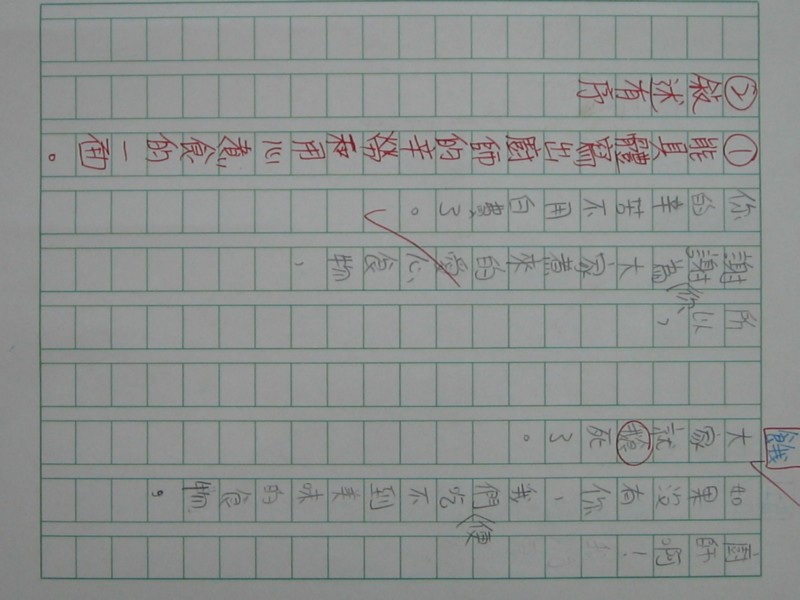 廚師啊！
如果沒有你，我們便吃不到美味的食物，
大家就死了。
餓
所以，
謝謝你為大家煮來的愛心食物，
你的辛苦不用白費了。
①能具體寫出廚師的辛勞和用心煮食的一面。
②敘述有序